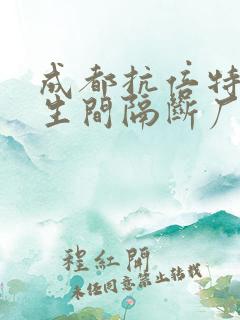 成都抗倍特
生間隔斷厂
程紅開
未经同意禁止转载